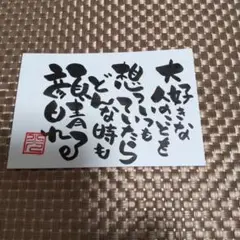 大好きな
人のことを
いつも
想っていたら
どんな時も